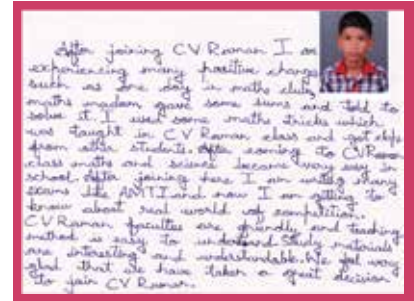 After joining CV Raman I am
experiencing many positive change
such as one day in maths club
maths madam gave some sums and told to
solve it. I used some maths tricks which
was taught in CV Raman class and got claps
from other students. After coming to CV Raman
class maths and science became very easy in
school. After joining here I am writing many
exams like AMTI and now I am getting to
know about real world of competition.
CV Raman faculties are friendly and teaching
method is easy to understand. Study materials
are interesting and understandable. We feel very
glad that we have taken a great decision
to join CV Raman.